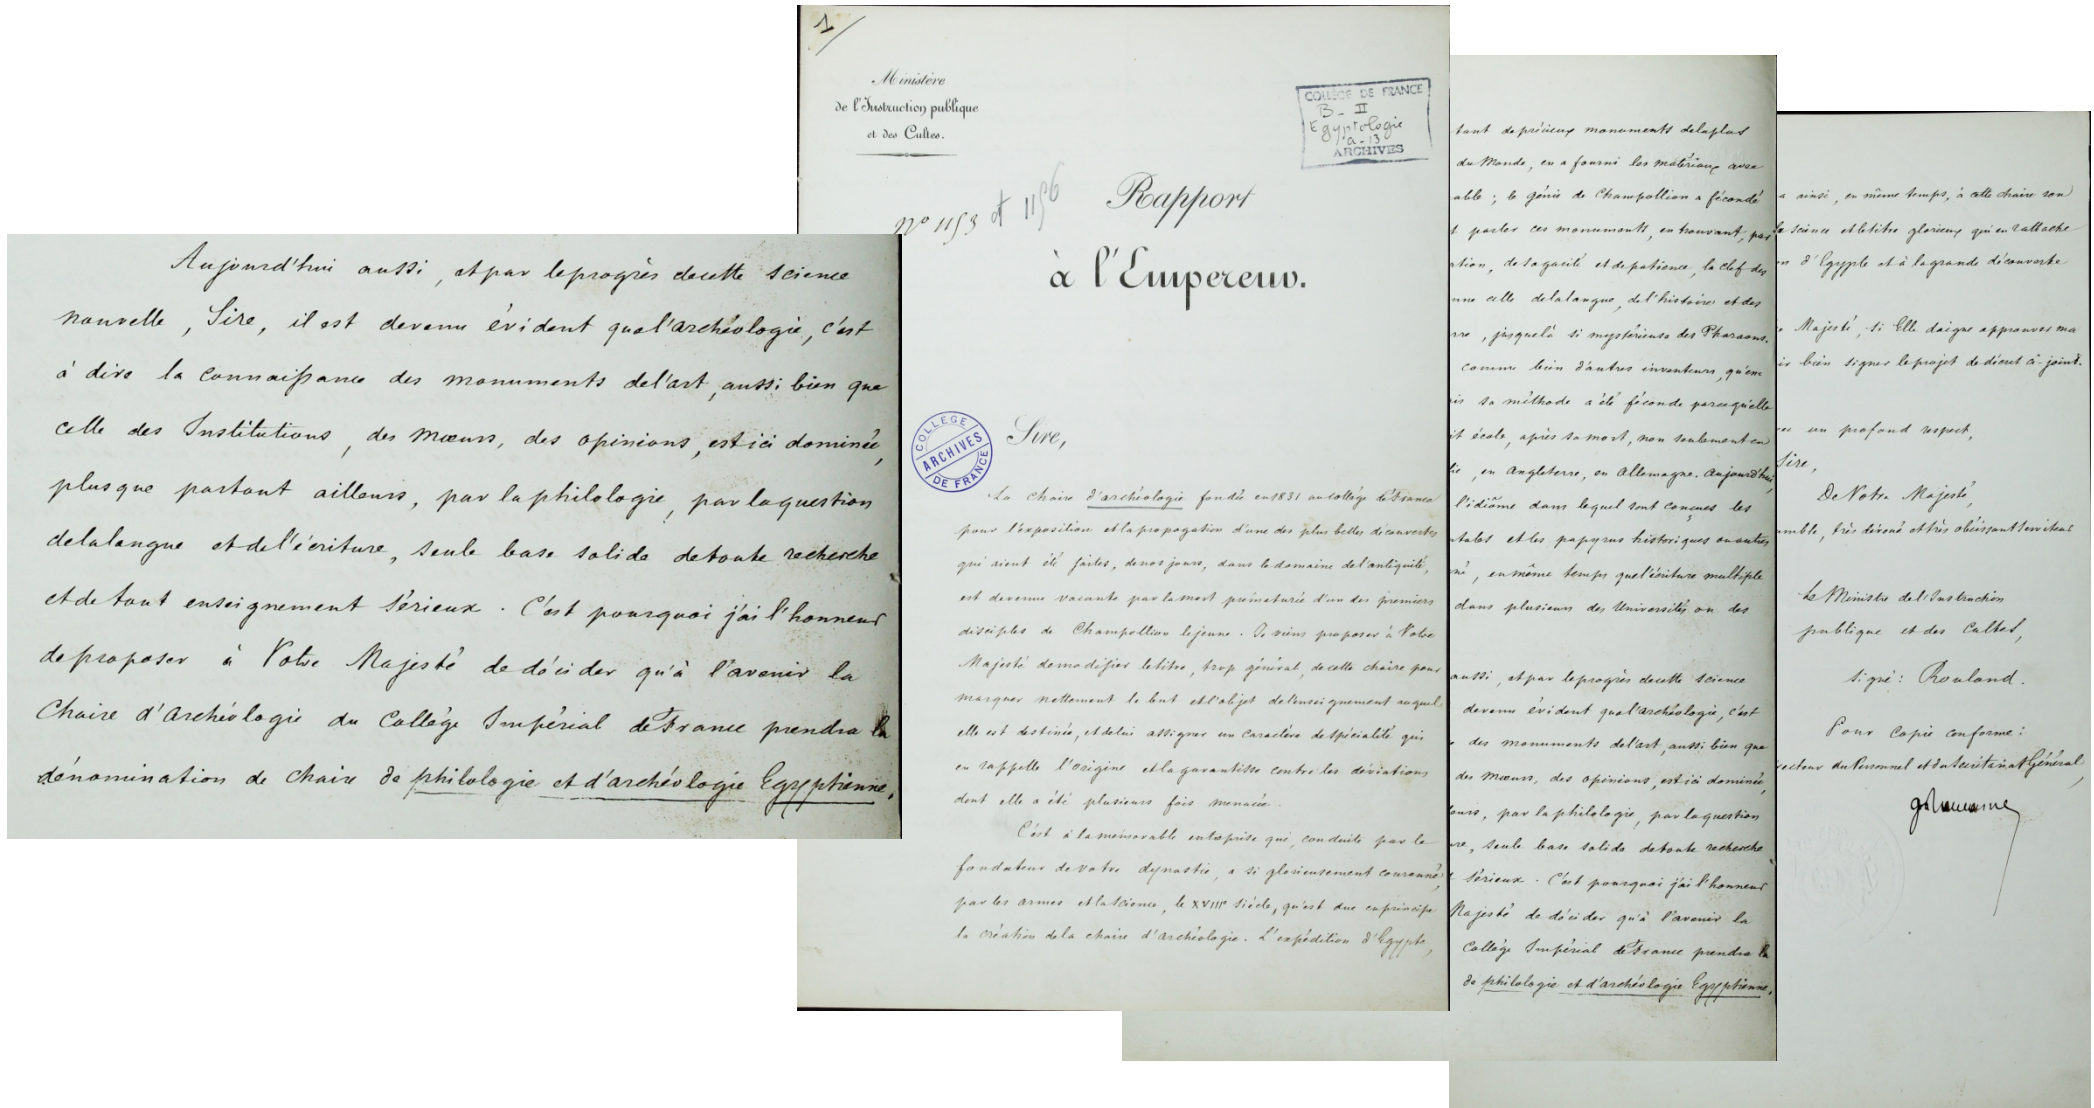 Aujourd'hui aussi, et par le progrès de cette science
nouvelle, Sire, il est devenu évident que l'archéologie, c'est
à dire la connaissance des monuments de l'art, aussi bien que
celle des Institutions, des mœurs, des opinions, est ici dominée,
plus que partout ailleurs, par la philologie, par la question
de la langue et de l'écriture, seule base solide de toute recherche
et de tout enseignement sérieux. C'est pourquoi j'ai l'honneur
de proposer à Votre Majesté de décider qu'à l'avenir la
Chaire d'Archéologie du Collège Impérial de France prendra la
dénomination de chaire de philologie et d'archéologie Egyptienne.
1
Ministère
de l'Instruction publique
et des Cultes.
COLLÈGE DE FRANCE
B - II
Egyptologie
a - 13
ARCHIVES
No 1153 et 1156
Rapport
à l'Empereur.
COLLEGE DE FRANCE
ARCHIVES
Sire,
La chaire d'archéologie fondée en 1831 au collège de France
pour l'exposition et la propagation d'une des plus belles découvertes
qui aient été faites, de nos jours, dans le domaine de l'antiquité,
est devenue vacante par la mort prématurée d'un des premiers
disciples de Champollion le jeune. Je viens proposer à Votre
Majesté de modifier le titre, trop général, de cette chaire pour
marquer nettement le but et l'objet de l'enseignement auquel
elle est destinée, et de lui assigner un caractère de spécialité qui
en rappelle l'origine et la garantisse contre les déviations
dont elle a été plusieurs fois menacée.
C'est à la mémorable entreprise qui, conduite par le
fondateur de votre dynastie, a si glorieusement couronné,
par les armes et la science, le XVIIIe siècle, qu'est due en principe
la création de la chaire d'archéologie. L'expédition d'Egypte,
tant de précieux monuments de la plus
du Monde, en a fourni les matériaux avec
able ; le génie de Champollion a fécondé
parler ces monuments, en trouvant, par
tion, de sagacité et de patience, la clef des
celle de la langue, de l'histoire et des
rre, jusque là si mystérieuse des Pharaons.
comme bien d'autres inventeurs, qu'en
is sa méthode a été féconde parce qu'elle
it école, après sa mort, non seulement en
ie, en Angleterre, en Allemagne. Aujourd'hui,
l'idiôme dans lequel sont conçues les
ntales et les papyrus historiques ou autres
né, en même temps que l'écriture multiple
dans plusieurs des Universités ou des
aussi, et par le progrès de cette science
devenu évident que l'archéologie, c'est
des monuments de l'art, aussi bien que
des mœurs, des opinions, est ici dominée,
eurs, par la philologie, par la question
re, seule base solide de toute recherche
sérieux. C'est pourquoi j'ai l'honneur
Majesté de décider qu'à l'avenir la
Collège Impérial de France prendra la
de philologie et d'archéologie Egyptienne.
a ainsi, en même temps, à cette chaire son
la science et le titre glorieux qui en rattache
n d'Egypte et à la grande découverte
Majesté, si Elle daigne approuver ma
ir bien signer le projet de décret ci-joint.
ec un profond respect,
Sire,
De Votre Majesté,
umble, très dévoué et très obéissant serviteur
Le Ministre de l'Instruction
publique et des Cultes,
signé : Rouland.
Pour copie conforme :
recteur du Personnel et du Secrétariat Général,